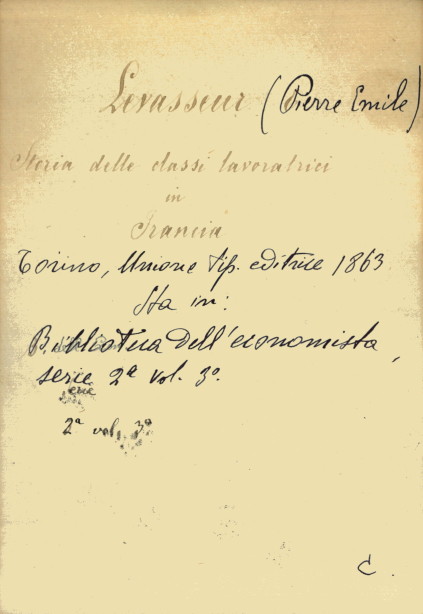 Levasseur (Pierre Emile)
Storia delle classi lavoratrici
in
Francia
Torino, Unione tip. editrice 1863
Sta in:
Biblioteca dell'economista,
serie 2ª vol. 3º.
erie
2ª vol. 3º
C